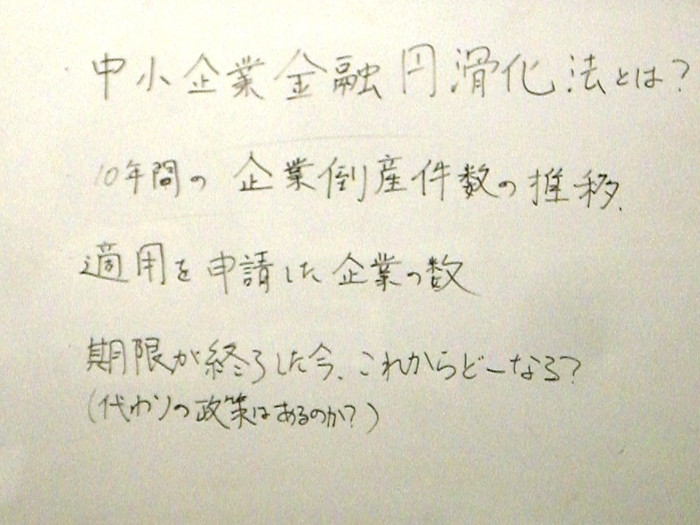 中小企業金融円滑化法とは?
10年間の企業倒産件数の推移.
適用を申請した企業の数
期限が終了した今、これからどーなる?
(代わりの政策はあるのか?)